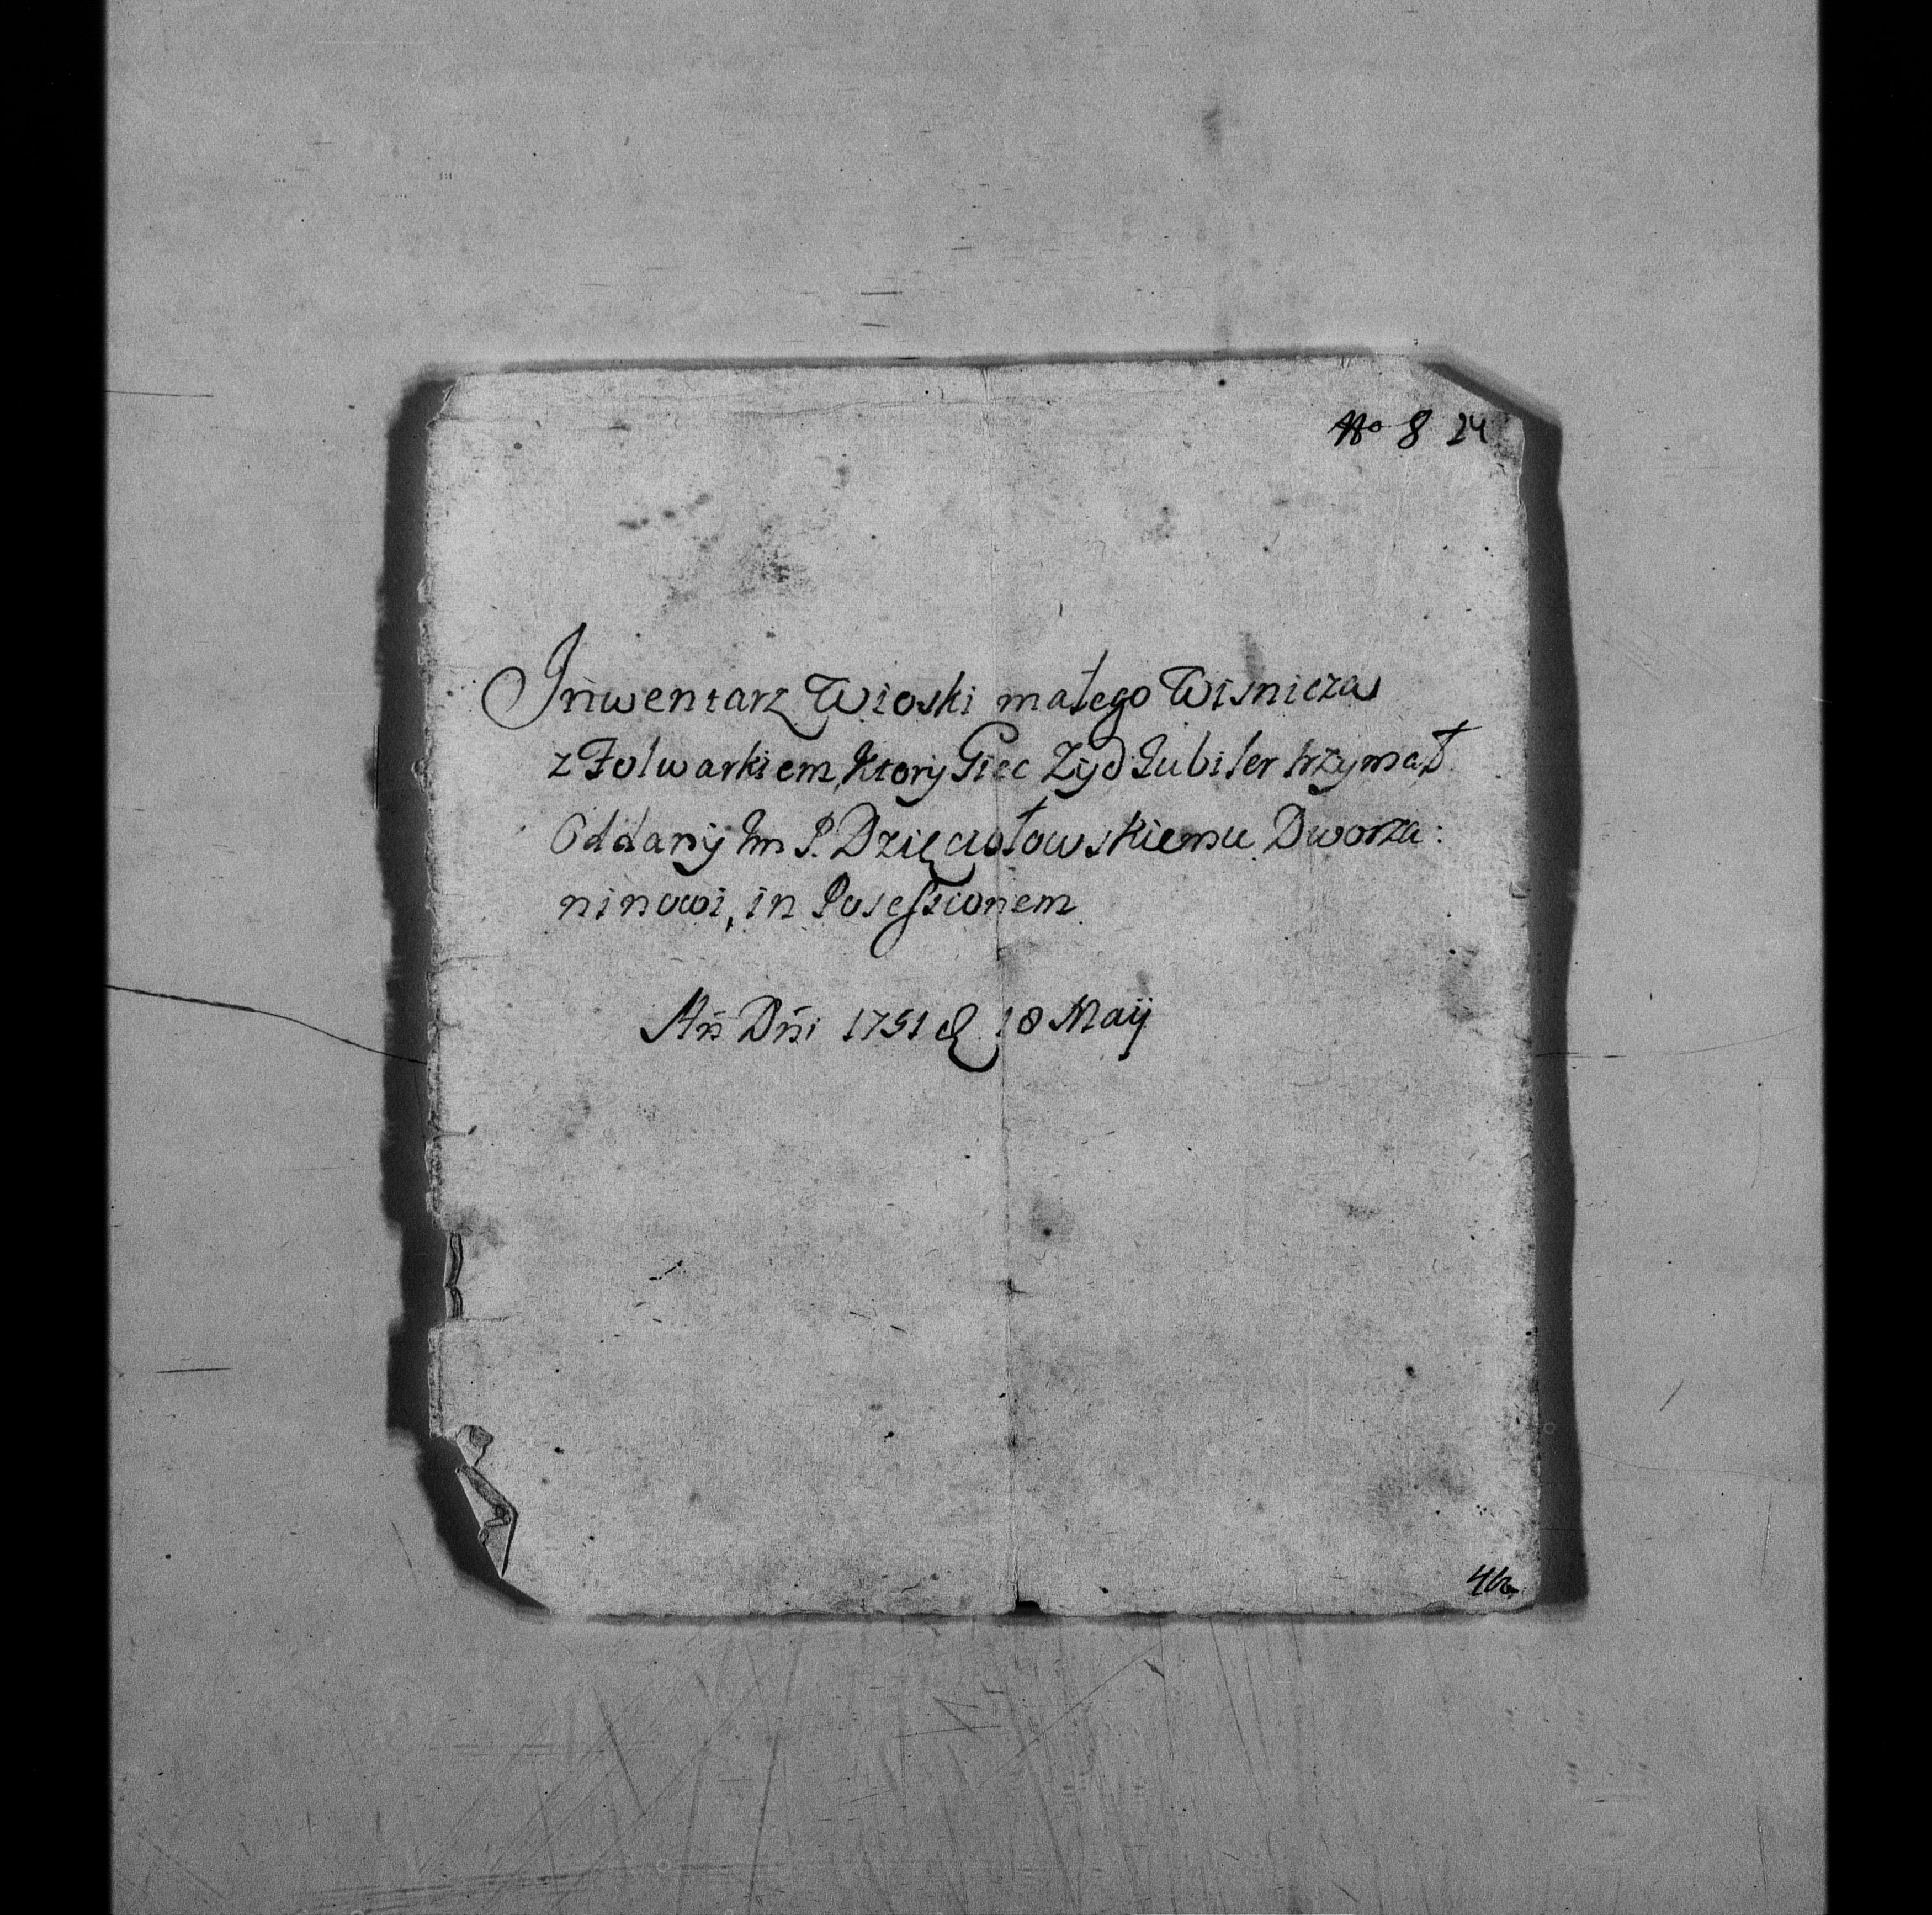 No 8 24
Inwentarz Wioski małego Wisnicza
z Folwarkiem, Ktory Giec Zyd Jubiler trzymał
Oddany Im P. Dzięciołowskiemu Dworza:
ninowi, in Posessionem
Añ Dñi 1751 d 18 Maij